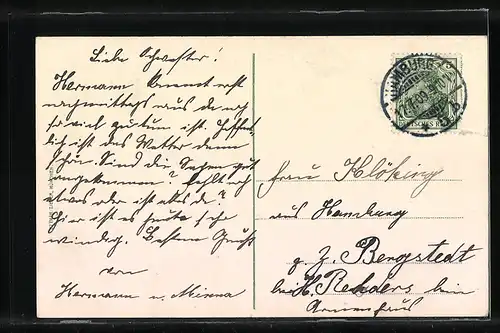 Liebe Schwester!
Hermann kommt erst
nachmittags aus da noch
so viel zu tun ist. Hoffent-
lich ist das Wetter dann
schön. Sind die Sachen gut
angekommen? Fehlt noch
etwas oder ist alles da?
Hier ist es heute sehr
windig. Besten Gruß
von
Hermann u. Minna
HAMBURG
Frau Klöking
aus Hamburg
z. Z. Bergstedt
bei H. Rehders beim
Armenhaus